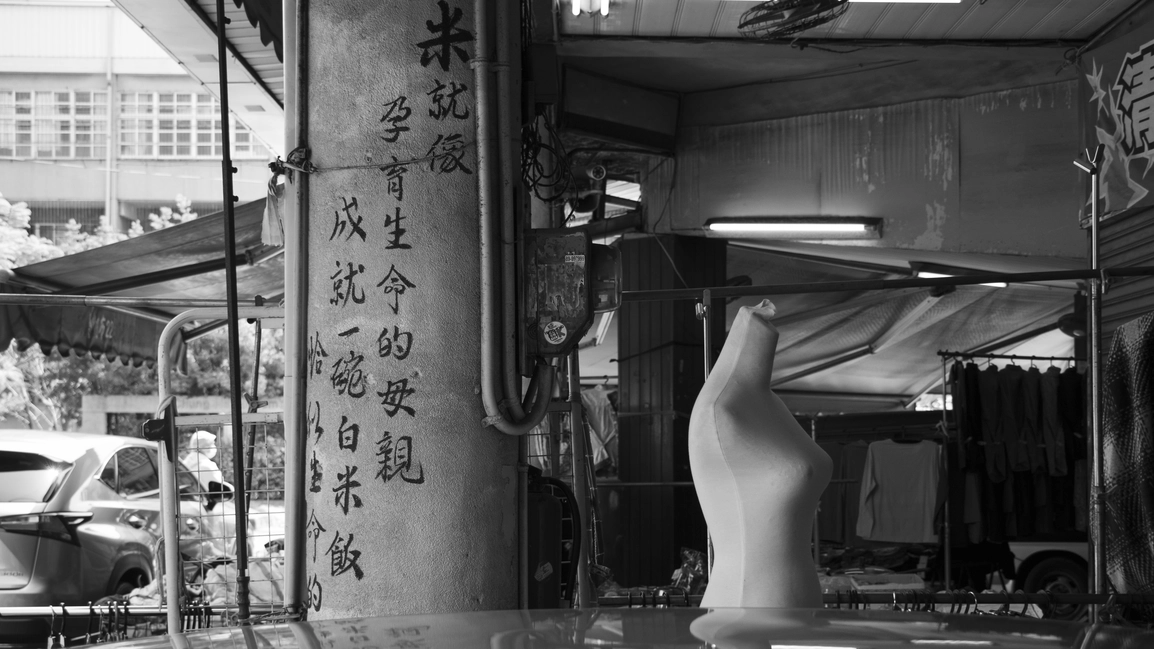 米就像
孕育生命的母親
成就一碗白米飯
恰似生命的
清